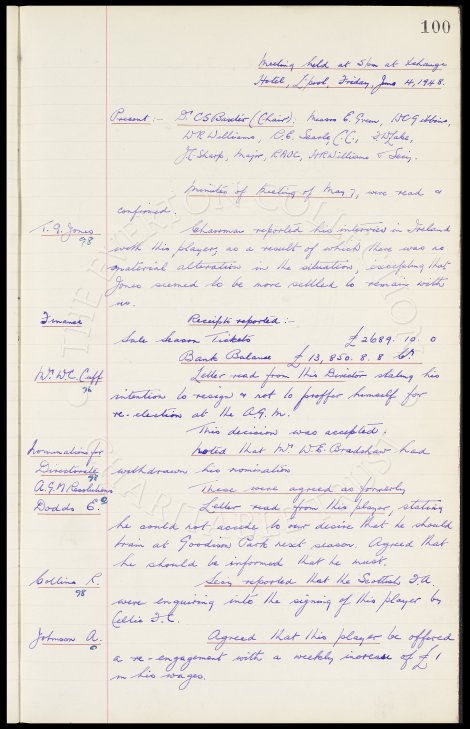 100
Meeting held at 5pm at Exchange
Hotel, L'pool, Friday, June 4, 1948.
Present:- Dr. C S Baxter (Chair): Messrs E. Green, W C Gibbins,
W R Williams, R. E. Searle C.C., F. W Lake,
J C Sharp, Major, RAOC, H R Williams & Secy.
Minutes of Meeting of May 7, were read &
confirmed.
T. G. Jones Chairman reported his interview in Ireland
98
with this player, as a result of which there was no
material alteration in the situation, excepting that
Jones seemed to be more settled to remain with
us.
Finance Receipts reported:-
Sale Season Tickets £2689. 10. 0
Bank Balance £13,850. 8. 8 Cr
Mr. W. C. Cuff Letter read from this Director stating his
96
intention to resign & not to proffer himself for
re-election at the A.G.M.
This decision was accepted.
Nominations for Noted that Mr. W. E. Bradshaw had
Directorate withdrawn his nomination
98
A.G.M Resolutions These were agreed as formerly
Dodds E. Letter read from this player, stating
he could not accede to our desire that he should
train at Goodison Park next season. Agreed that
he should be informed that he must.
Collins R. Secy reported that the Scottish F.A.
98
were enquiring into the signing of this player by
Celtic F.C.
Johnson A. Agreed that this player be offered
a re-engagement with a weekly increase of £1
in his wages.
THE EVERTON COLLECTION
CHARITABLE TRUST